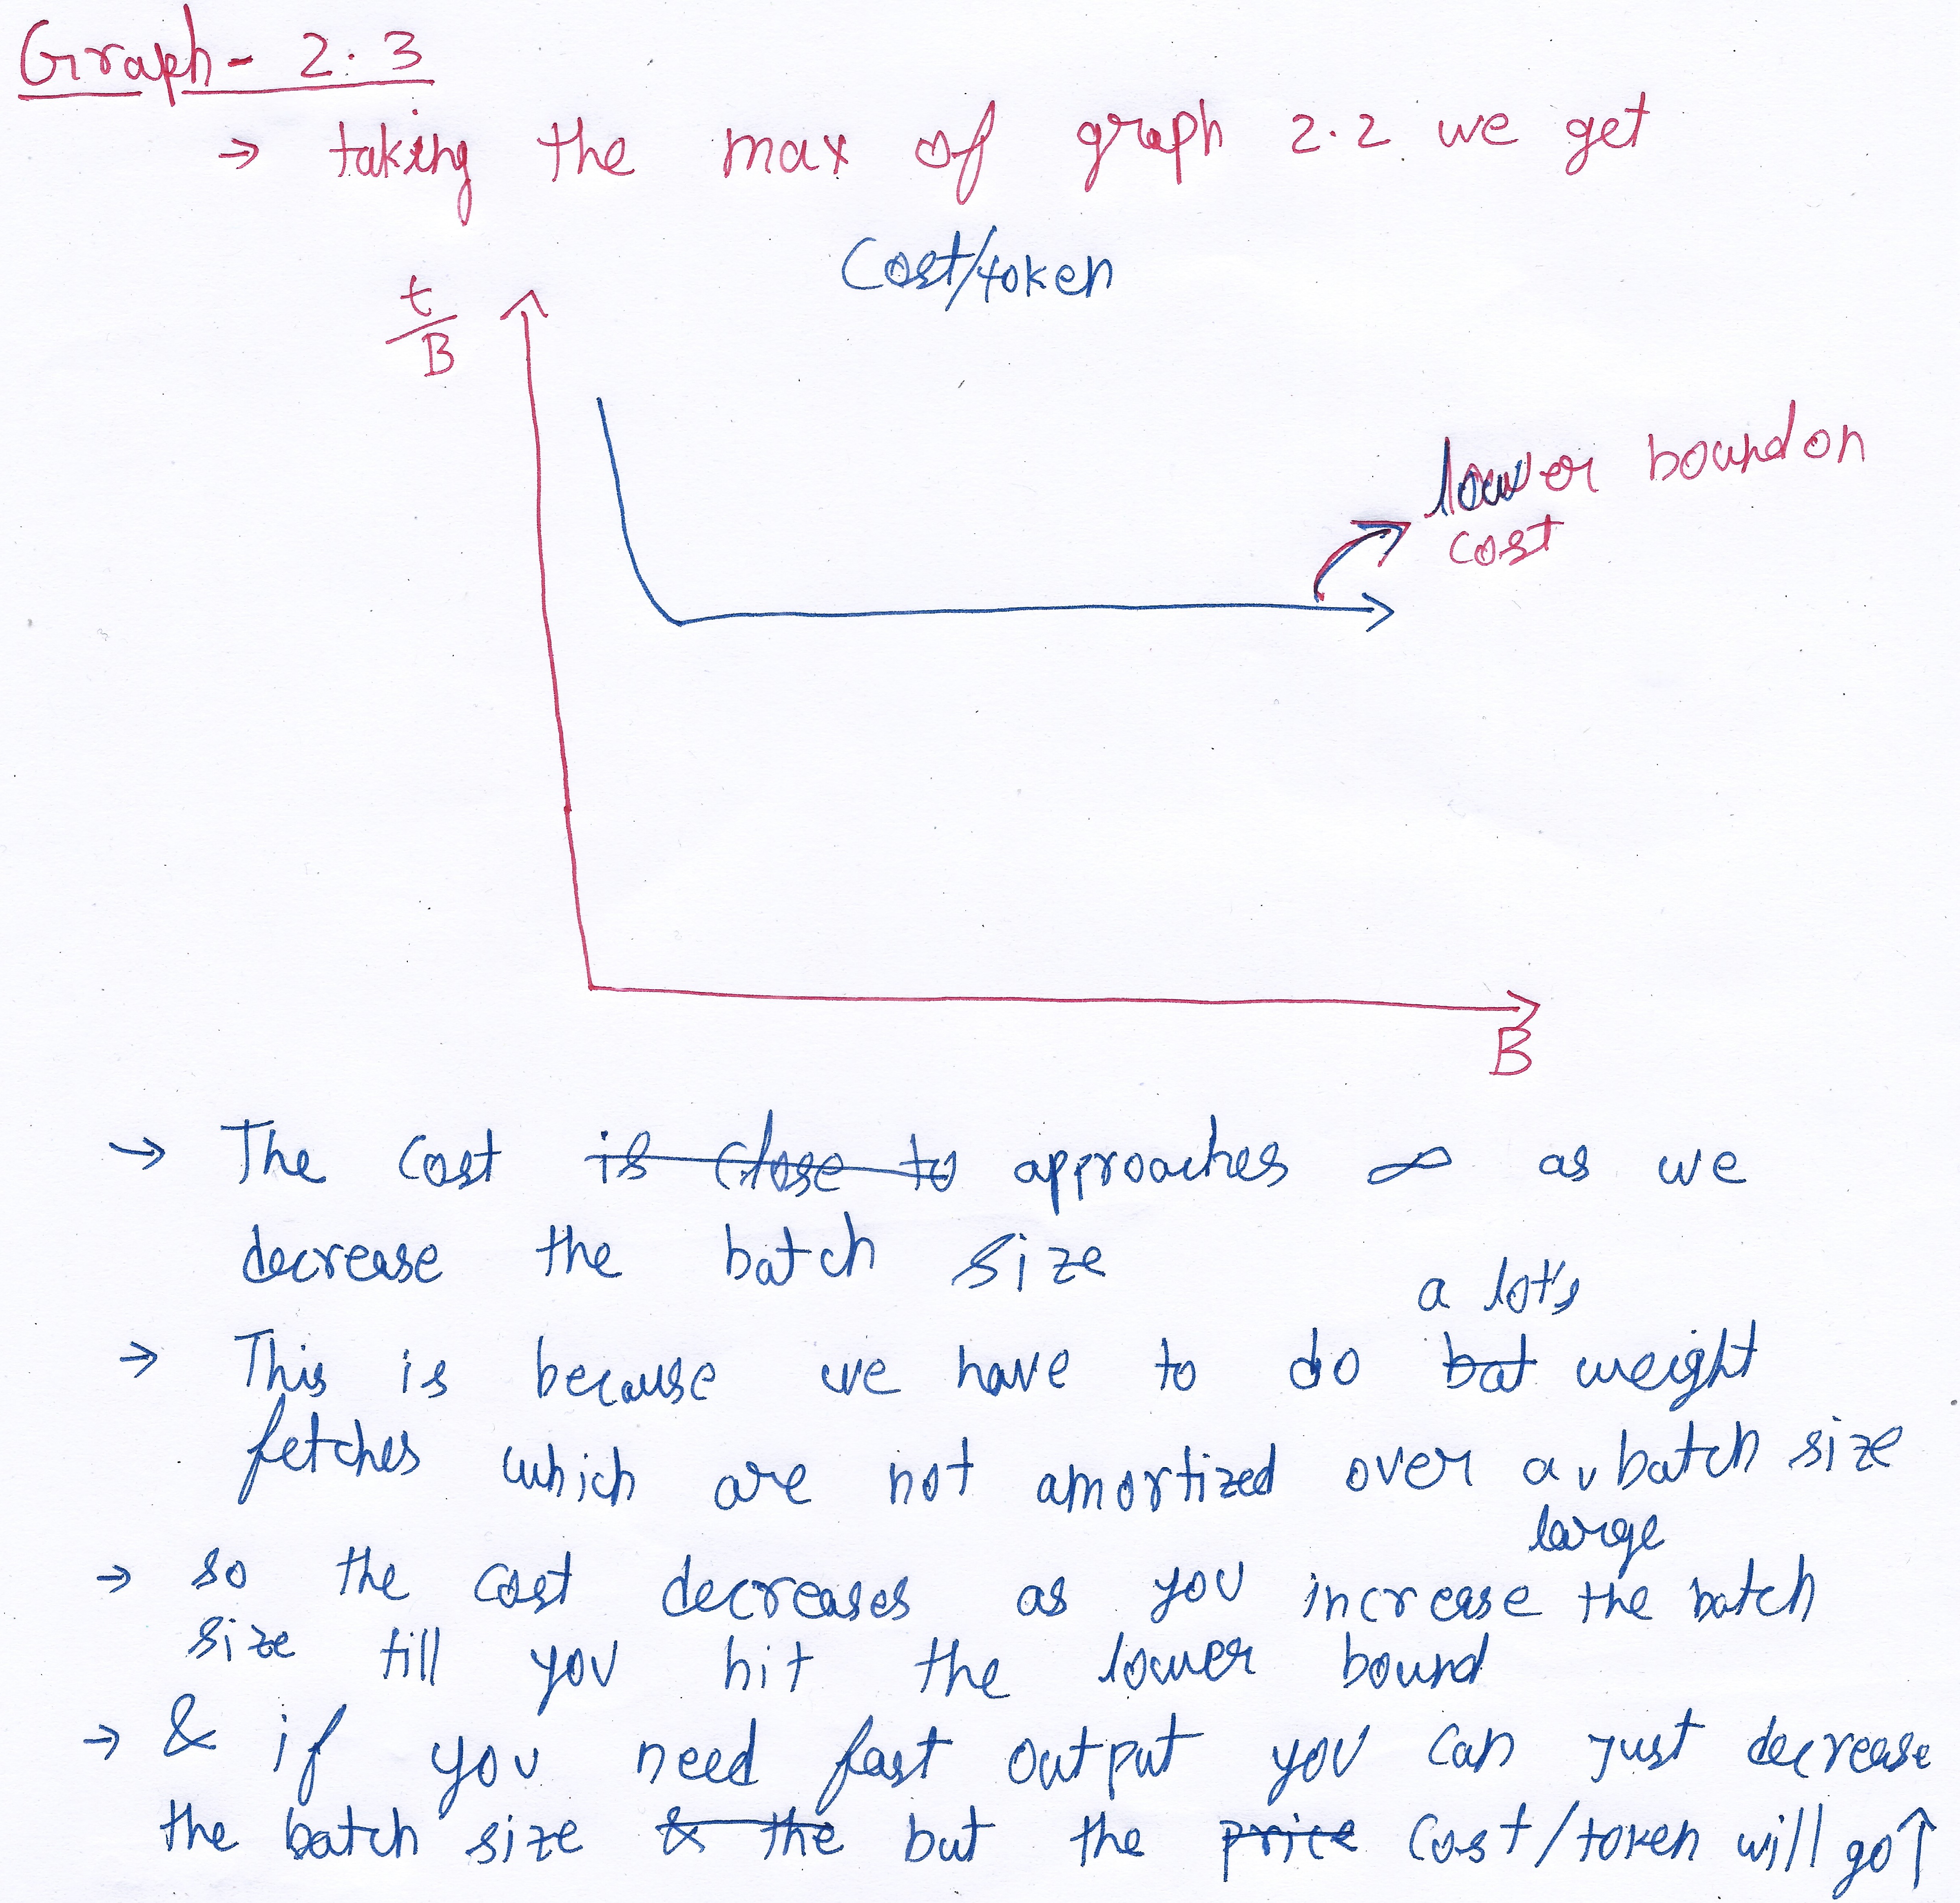 Graph- 2.3
→ taking the max of graph 2.2 we get
Cost/token
t/B
lower bound on
cost
B
→ The cost is close to approaches ∞ as we
decrease the batch size
a lot's
→ This is because we have to do bat weight
fetches which are not amortized over a batch size
large
→ so the cost decreases as you increase the batch
size till you hit the lower bound
→ & if you need fast output you can just decrease
the batch size & the but the price cost/token will go ↑